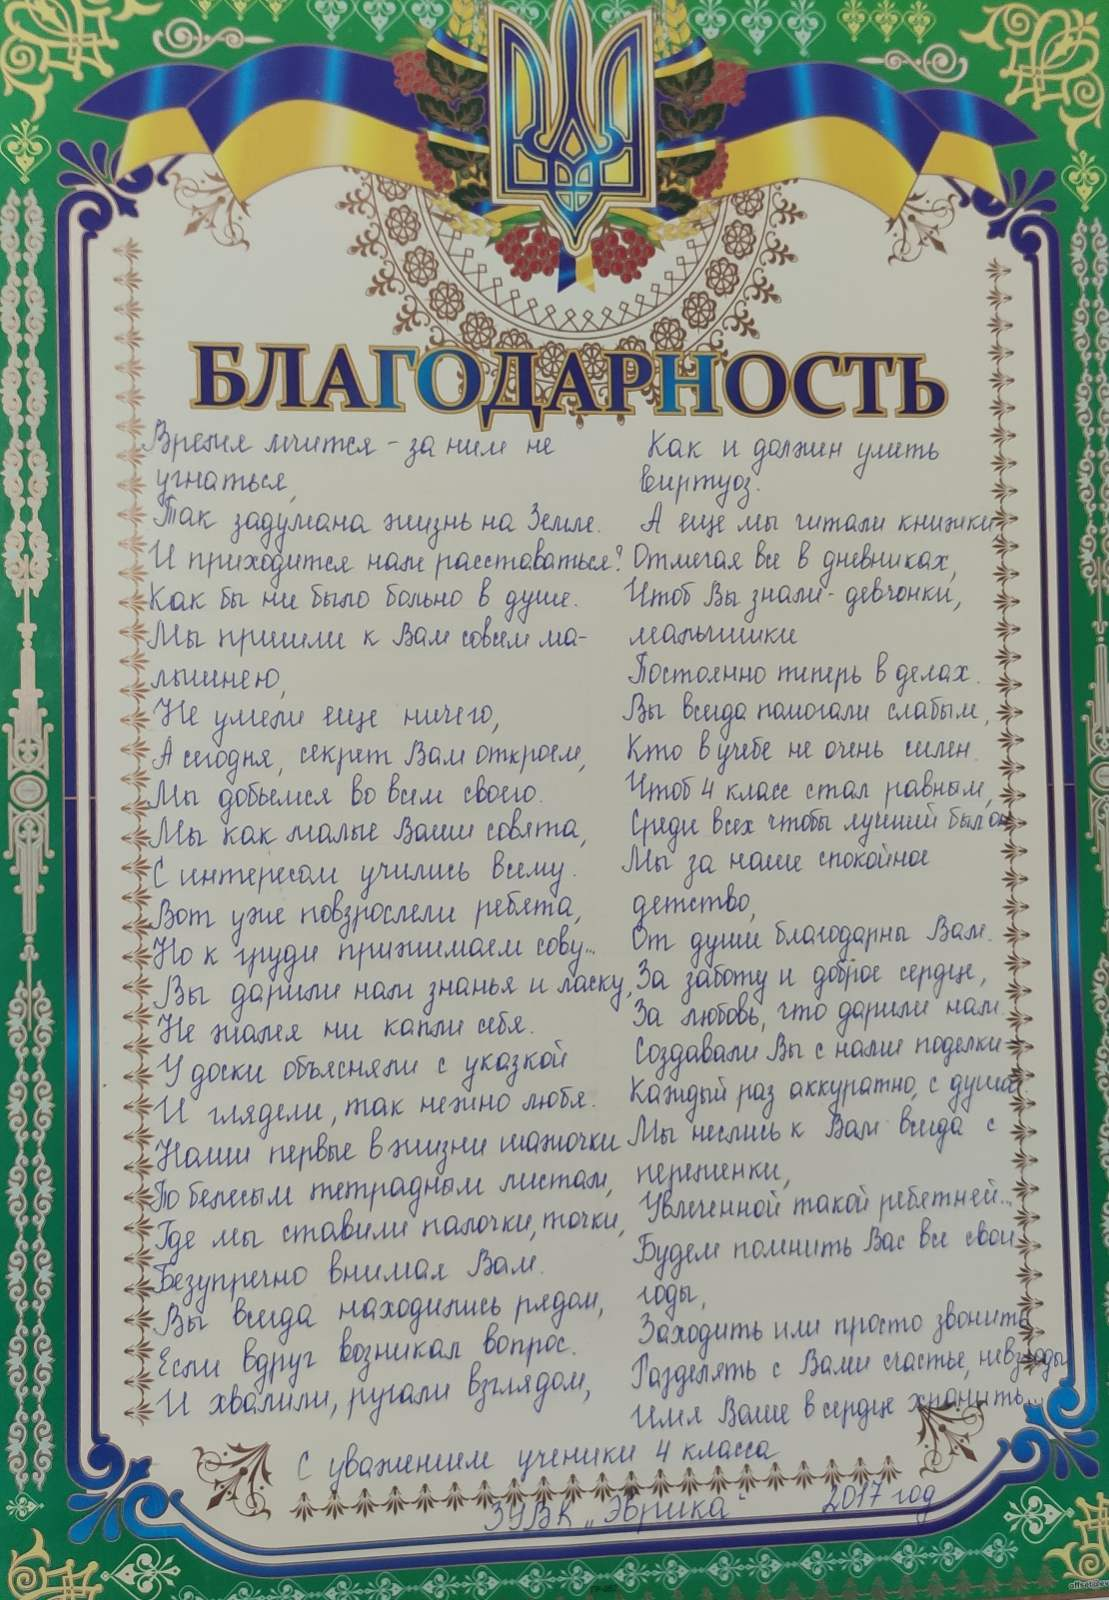 БЛАГОДАРНОСТЬ
Время мчится - за ним не
угнаться,
Так задумана жизнь на Земле.
И приходится нам расставаться?
Как бы ни было больно в душе.
Мы пришли к Вам совсем ма-
лышнею,
Не умели еще ничего,
А сегодня, секрет Вам откроем,
Мы добьемся во всем своего.
Мы как малые Ваши совята,
С интересом учились всему.
Вот уже повзрослели ребята,
Но к груди прижимаем сову...
Вы дарили нам знанья и ласку,
Не жалея ни капли себя.
У доски объясняли с указкой
И глядели, так нежно любя.
Наши первые в жизни шажочки
По белесым тетрадным листам,
Где мы ставили палочки, точки,
Безупречно внимая Вам.
Вы всегда находились рядом,
Если вдруг возникал вопрос.
И хвалили, ругали взглядом,
Как и должен уметь
виртуоз.
А еще мы читали книжки
Отмечая все в дневниках,
Чтоб Вы знали - девчонки,
мальчишки
Постоянно теперь в делах.
Вы всегда помогали слабым,
Кто в учебе не очень силен.
Чтоб 4 класс стал равным,
Среди всех чтобы лучший был он
Мы за наше спокойное
детство,
От души благодарны Вам.
За заботу и доброе сердце,
За любовь, что дарили нам.
Создавали Вы с нами поделки
Каждый раз аккуратно, с душой.
Мы неслись к Вам всегда с
переменки,
Увлеченной такой ребетней...
Будем помнить Вас все свои
годы,
Заходить или просто звонить
Разделять с Вами счастье, невзгоды
Имя Ваше в сердце хранить...
С уважением ученики 4 класса
ЗУВК „Эврика“ 2017 год